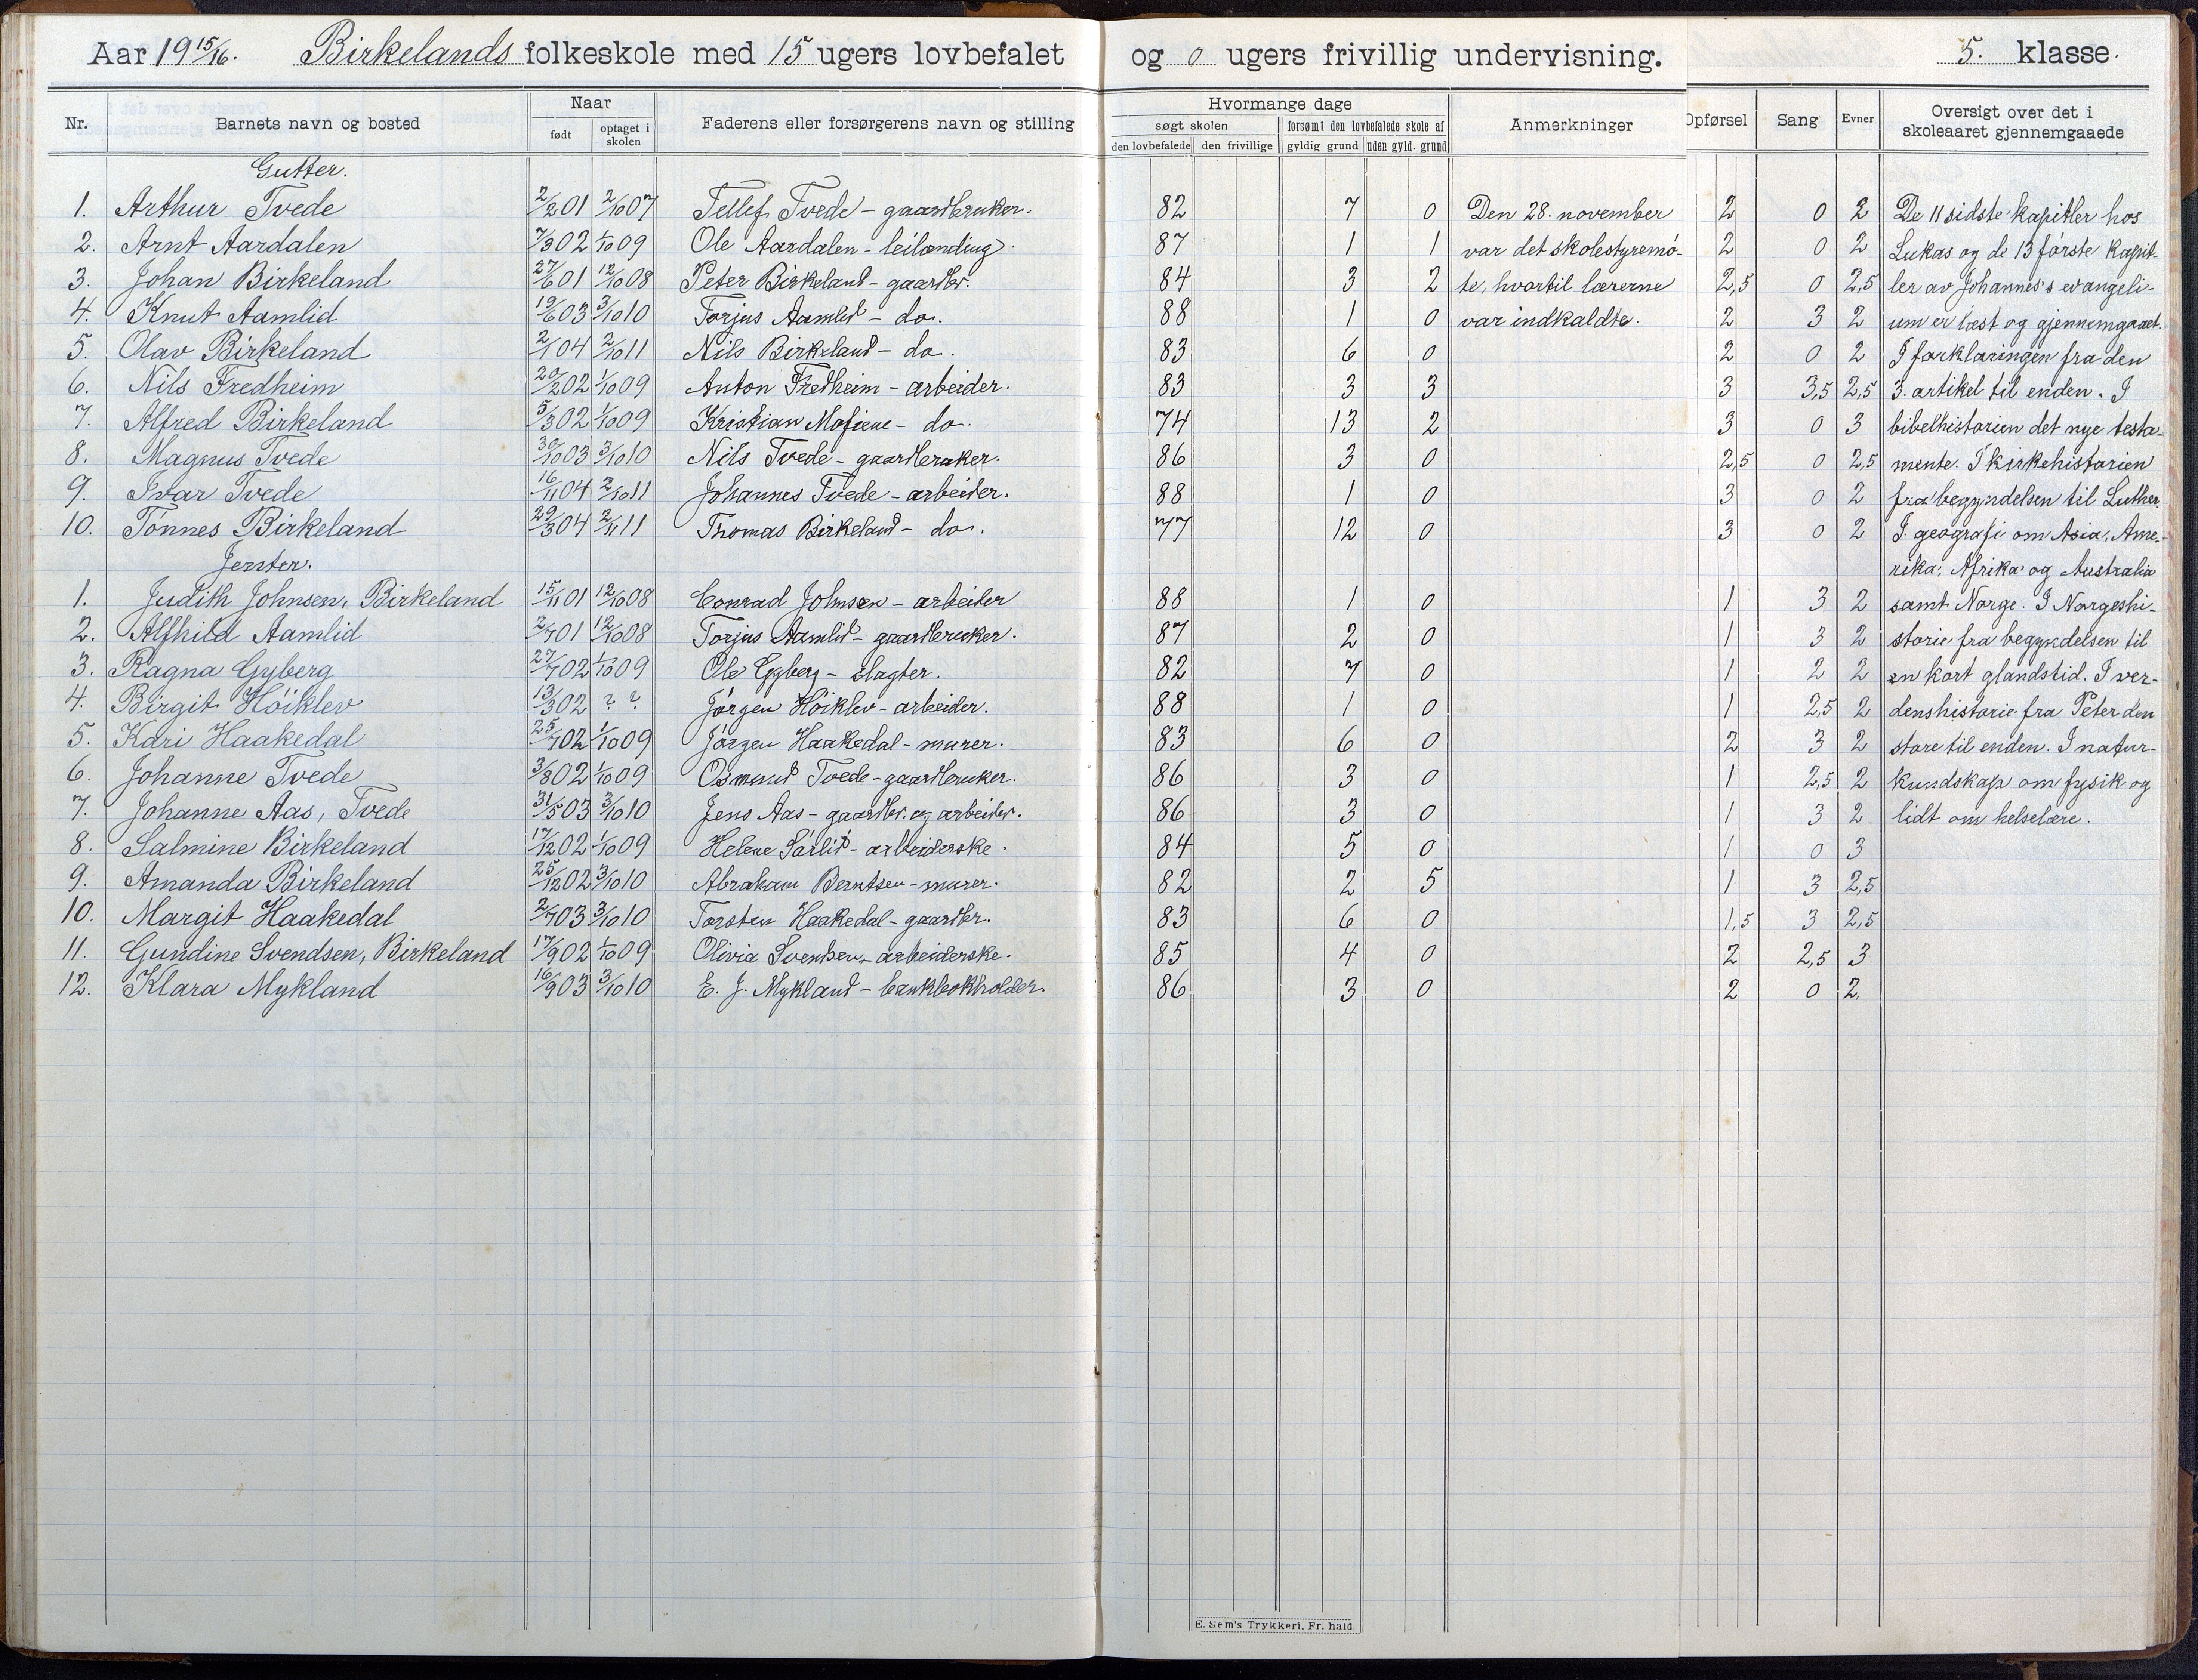 Aar 19 15/16. Birkelands folkeskole med 15 ugers lovbefalet og 0 ugers frivillig undervisning. 5. klasse.
Nr. Barnets navn og bosted Naar født optaget i skolen Faderens eller forsørgerens navn og stilling Hvormange dage søgt skolen den lovbefalede den frivillige forsømt den lovbefalede skole af gyldig grund uden gyld. grund Anmerkninger Opførsel Sang Evner Oversigt over det i skoleaaret gjennemgaaede
Gutter.
1. Arthur Tvede 2/2 01 2/10 07 Tellef Tvede - gaardbruker. 82 7 0 Den 28. november 2 0 2 De 11 sidste kapitler hos
2. Arnt Aardalen 7/3 02 1/10 09 Ole Aardalen - leilænding. 87 1 1 var det skolestyremö- 2 0 2 Lukas og de 13 første kapit-
3. Johan Birkeland 27/6 01 12/10 08 Peter Birkeland - gaardbr. 84 3 2 te, hvortil lærerne 2,5 0 2,5 ler av Johannes's evangeli-
4. Knut Aamlid 19/6 03 3/10 10 Torjus Aamlid - do. 88 1 0 var indkaldte. 2 3 2 um er læst og gjennemgaaet.
5. Olav Birkeland 2/1 04 2/10 11 Nils Birkeland - do. 83 6 0 2 0 2 I forklaringen fra den
6. Nils Fredheim 20/2 02 1/10 09 Anton Fredheim - arbeider. 83 3 3 3 3,5 2,5 3. artikel til enden. I
7. Alfred Birkeland 5/3 02 1/10 09 Kristian - do. 74 13 2 3 0 3 bibelhistorien det nye testa-
8. Magnus Tvede 30/10 03 3/10 10 Nils Tvede - gaardbruker. 86 3 0 2,5 0 2,5 mente. I kirkehistorien
9. Ivar Tvede 16/11 04 2/10 11 Johannes Tvede - arbeider. 88 1 0 3 0 2 fra begyndelsen til Luther.
10. Tønnes Birkeland 29/3 04 2/11 11 Thomas Birkeland - do. 77 12 0 3 0 2 I geografi om Asia, Ame-
Jenter. rika, Afrika og Australia
1. Judith Johnsen, Birkeland 15/11 01 12/10 08 Conrad Johnsen - arbeider 88 1 0 1 3 2 samt Norge. I Norgeshi-
2. Alfhild Aamlid 2/7 01 12/10 08 Torjus Aamlid - gaardbruker. 87 2 0 1 3 2 storie fra begyndelsen til
3. Ragna Gyberg 27/7 02 1/10 09 Ole Gyberg - slagter. 82 7 0 1 2 2 en kort glandstid. I ver-
4. Birgit Höiklev 13/3 02 ? ? Jørgen Höiklev - arbeider. 88 1 0 1 2,5 2 denshistorie fra Peter den
5. Kari Haakedal 25/7 02 1/10 09 Jørgen Haakedal - murer. 83 6 0 2 3 2 store til enden. I natur-
6. Johanne Tvede 3/8 02 1/10 09 Osmund Tvede - gaardbruker. 86 3 0 1 2,5 2 kundskap om fysik og
7. Johanne Aas, Tvede 31/5 03 3/10 10 Jens Aas - gaardbr. og arbeider. 86 3 0 1 3 2 lidt om helselære.
8. Salmine Birkeland 17/12 02 1/10 09 Helene Sarlid - arbeiderske. 84 5 0 1 0 3
9. Amanda Birkeland 25/12 02 3/10 10 Abraham Berntsen - murer. 82 2 5 1 3 2,5
10. Margit Haakedal 2/7 03 3/10 10 Torsten Haakedal - gaardbr. 83 6 0 1,5 3 2,5
11. Gundine Svendsen, Birkeland 17/9 02 1/10 09 Olivia Svendsen - arbeiderske. 85 4 0 2 2,5 3
12. Klara Mykland 16/9 03 3/10 10 E. J. Mykland - bankbokholder. 86 3 0 2 0 2.
E. Sem's Trykkeri, Fr. hald.